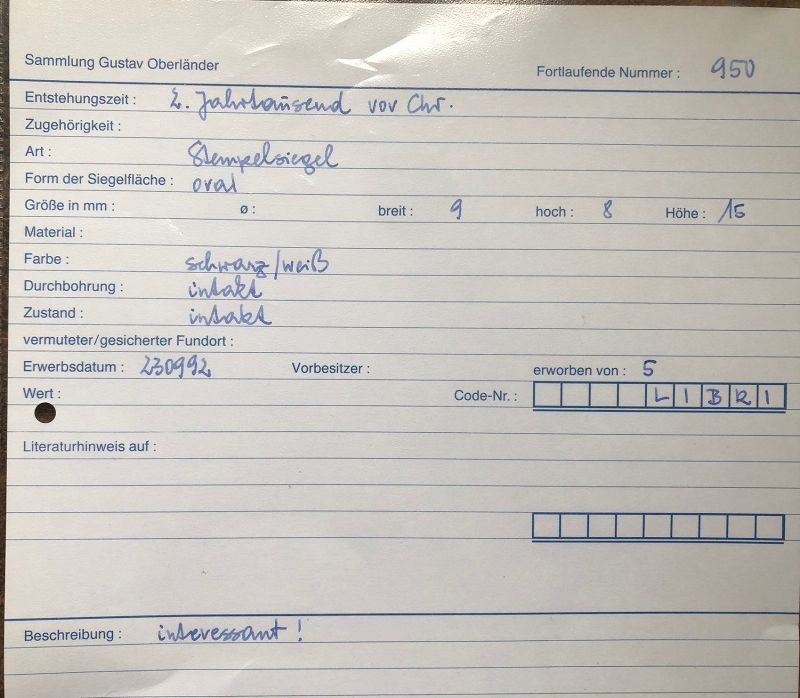 Sammlung Gustav Oberländer
Fortlaufende Nummer : 950
Entstehungszeit : 2. Jahrtausend vor Chr.
Zugehörigkeit :
Art : Stempelsiegel
Form der Siegelfläche : oval
Größe in mm : ø : breit : 9 hoch : 8 Höhe : 15
Material :
Farbe : schwarz/weiß
Durchbohrung : intakt
Zustand : intakt
vermuteter/gesicherter Fundort :
Erwerbsdatum : 230992 Vorbesitzer : erworben von : 5
Wert : Code-Nr. : LIBRI
Literaturhinweis auf :
Beschreibung : interessant !